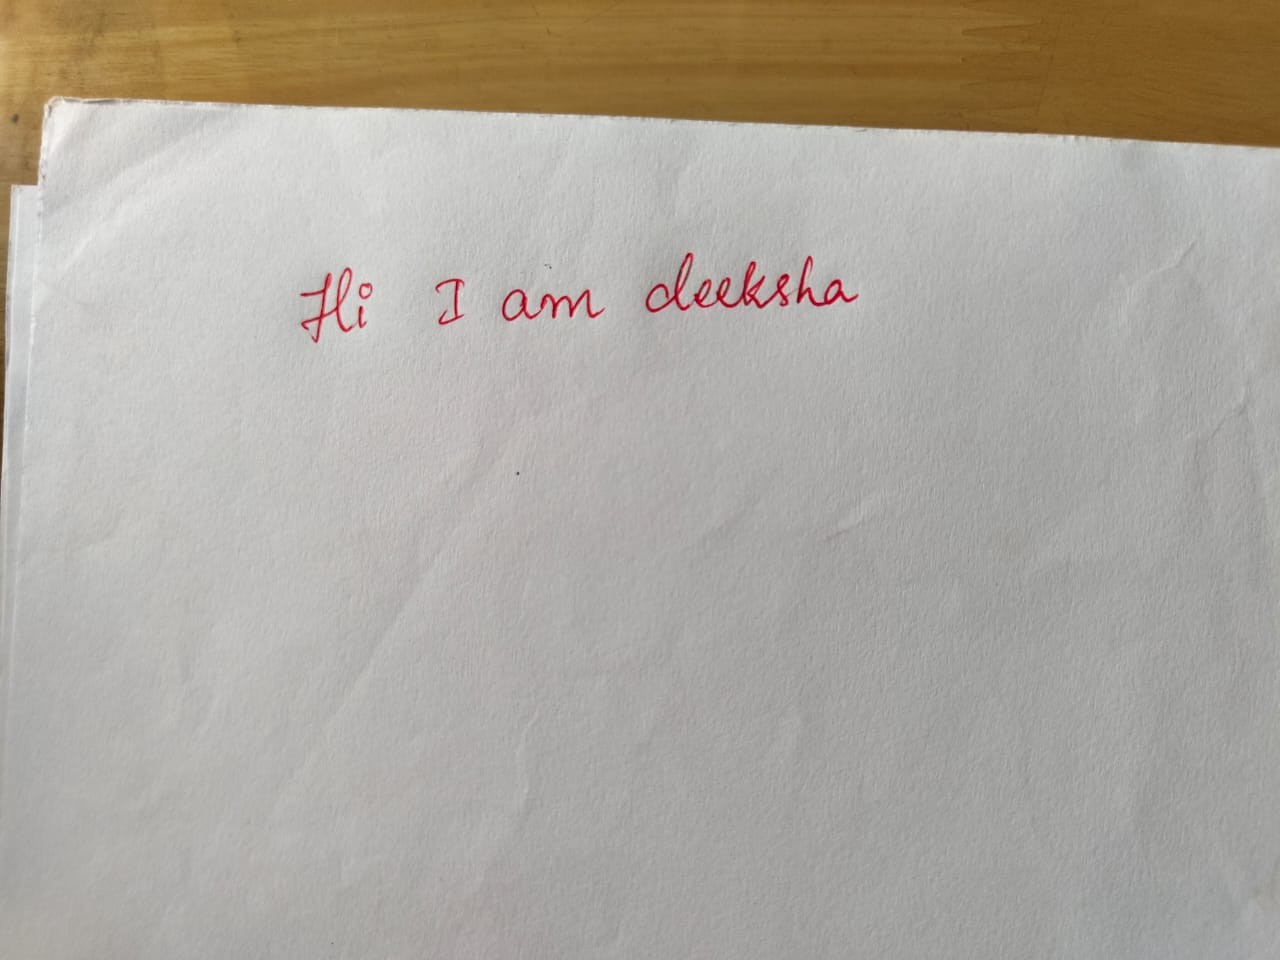 Hi I am deeksha